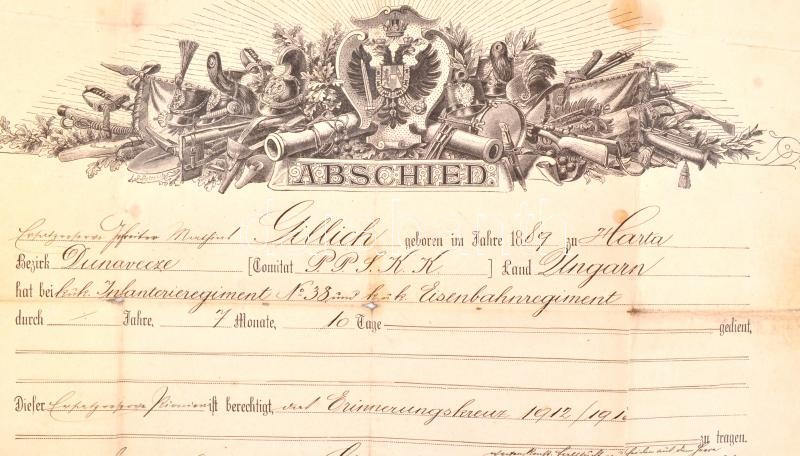 ABSCHIED.
Ersatzreserve Gillich geboren im Jahre 1889 zu Harta
Bezirk Dunavecze [Comitat P P S. K. K. ] Land Ungarn
hat bei k.u.k. Infanterieregiment No 38 und k.u.k. Eisenbahnregiment
durch — Jahre, 7 Monate, 10 Tage gedient,
Dieser Ersatzreserve Pionier ist berechtigt, das Erinnerungskreuz 1912/191
zu tragen.